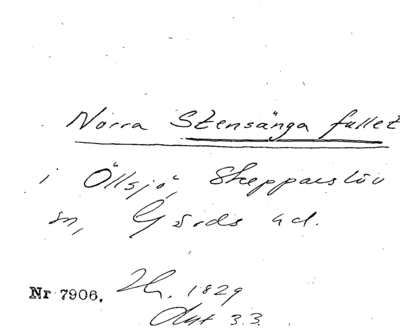 Norra Stensånga fallet
i Öllsjö, Skepparslöv
sn, Gärds hd.
Nr 7906.
1829
3.3.